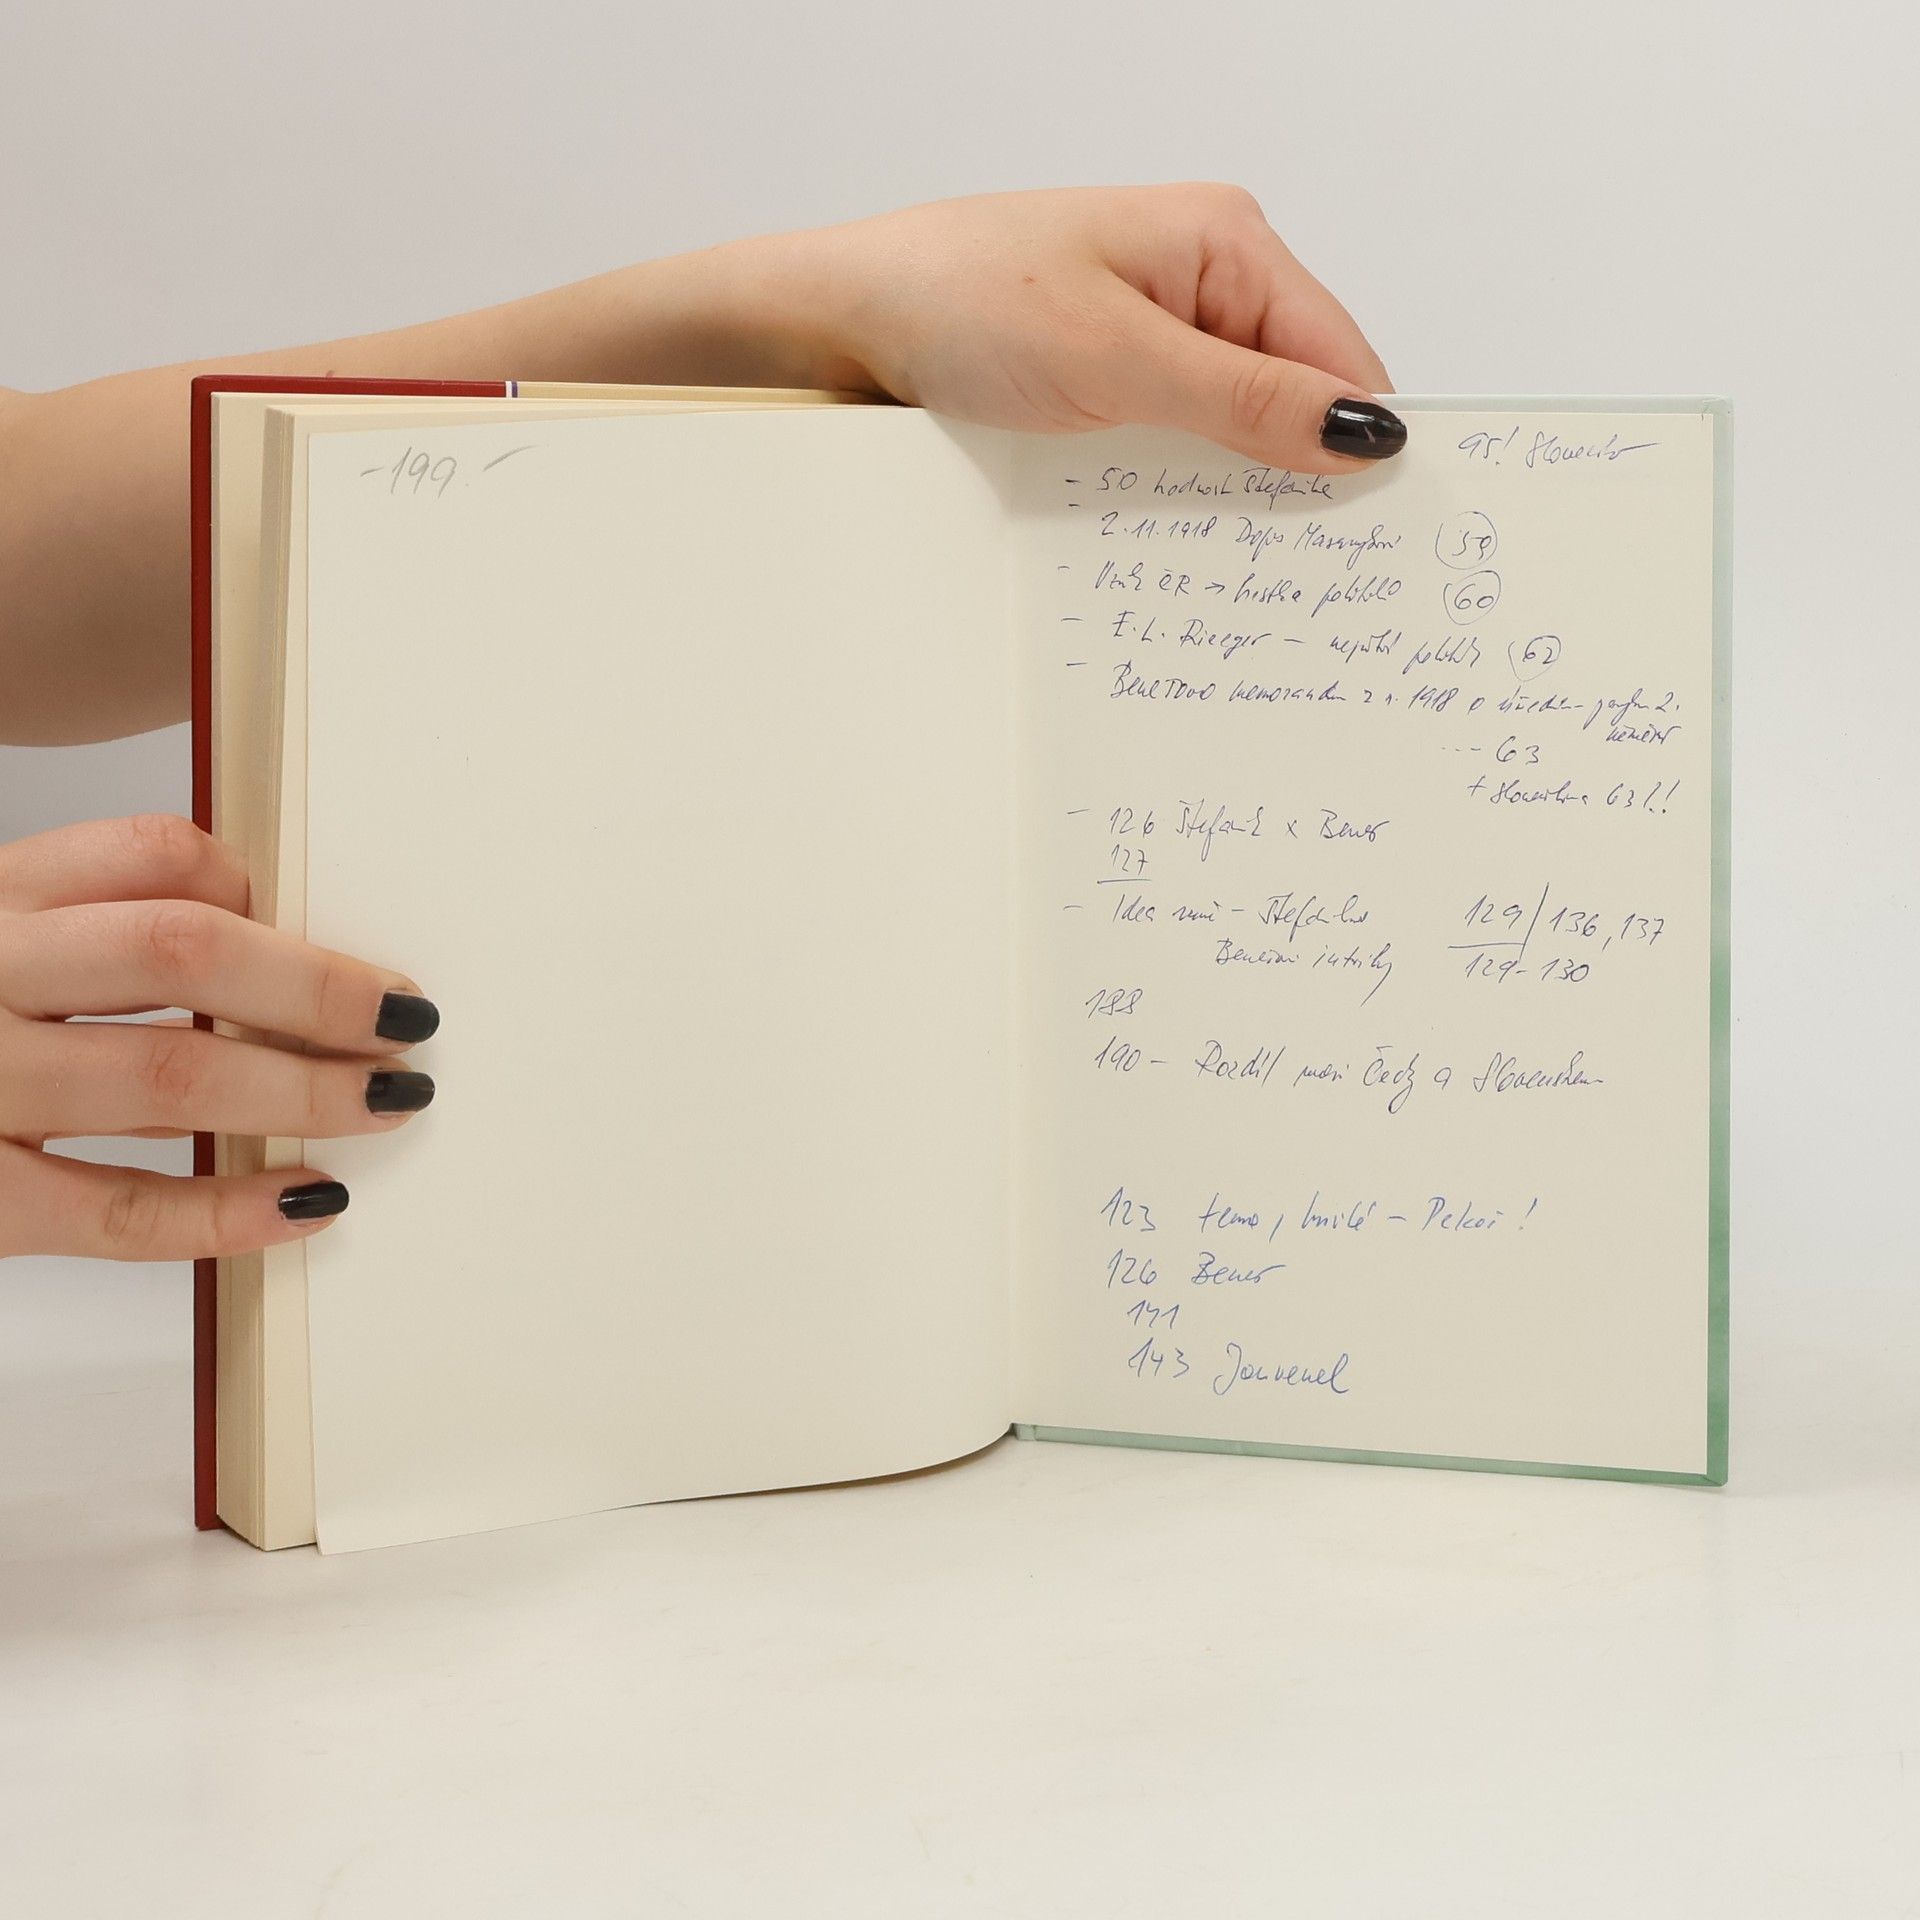 -199.-
95! Slovensko
- 50 hodnost Štefánika
- 2.11.1918 Dopis Masarykovi 59
- Vznik ČR → hrstka politiků 60
- F. L. Rieger - největší politik 62
- Benešovo memorandum z r. 1918 o
--- 63
+ Slovenština 63!!
- 126 Štefánik x Beneš
127
- Idea unie - Štefánikova 129/136, 137
Benešovi intriky 129-130
188
190 - Rozdíl mezi Čechy a Slovenskem
123 - Pekař!
126 Beneš
141
143 Jouvenel